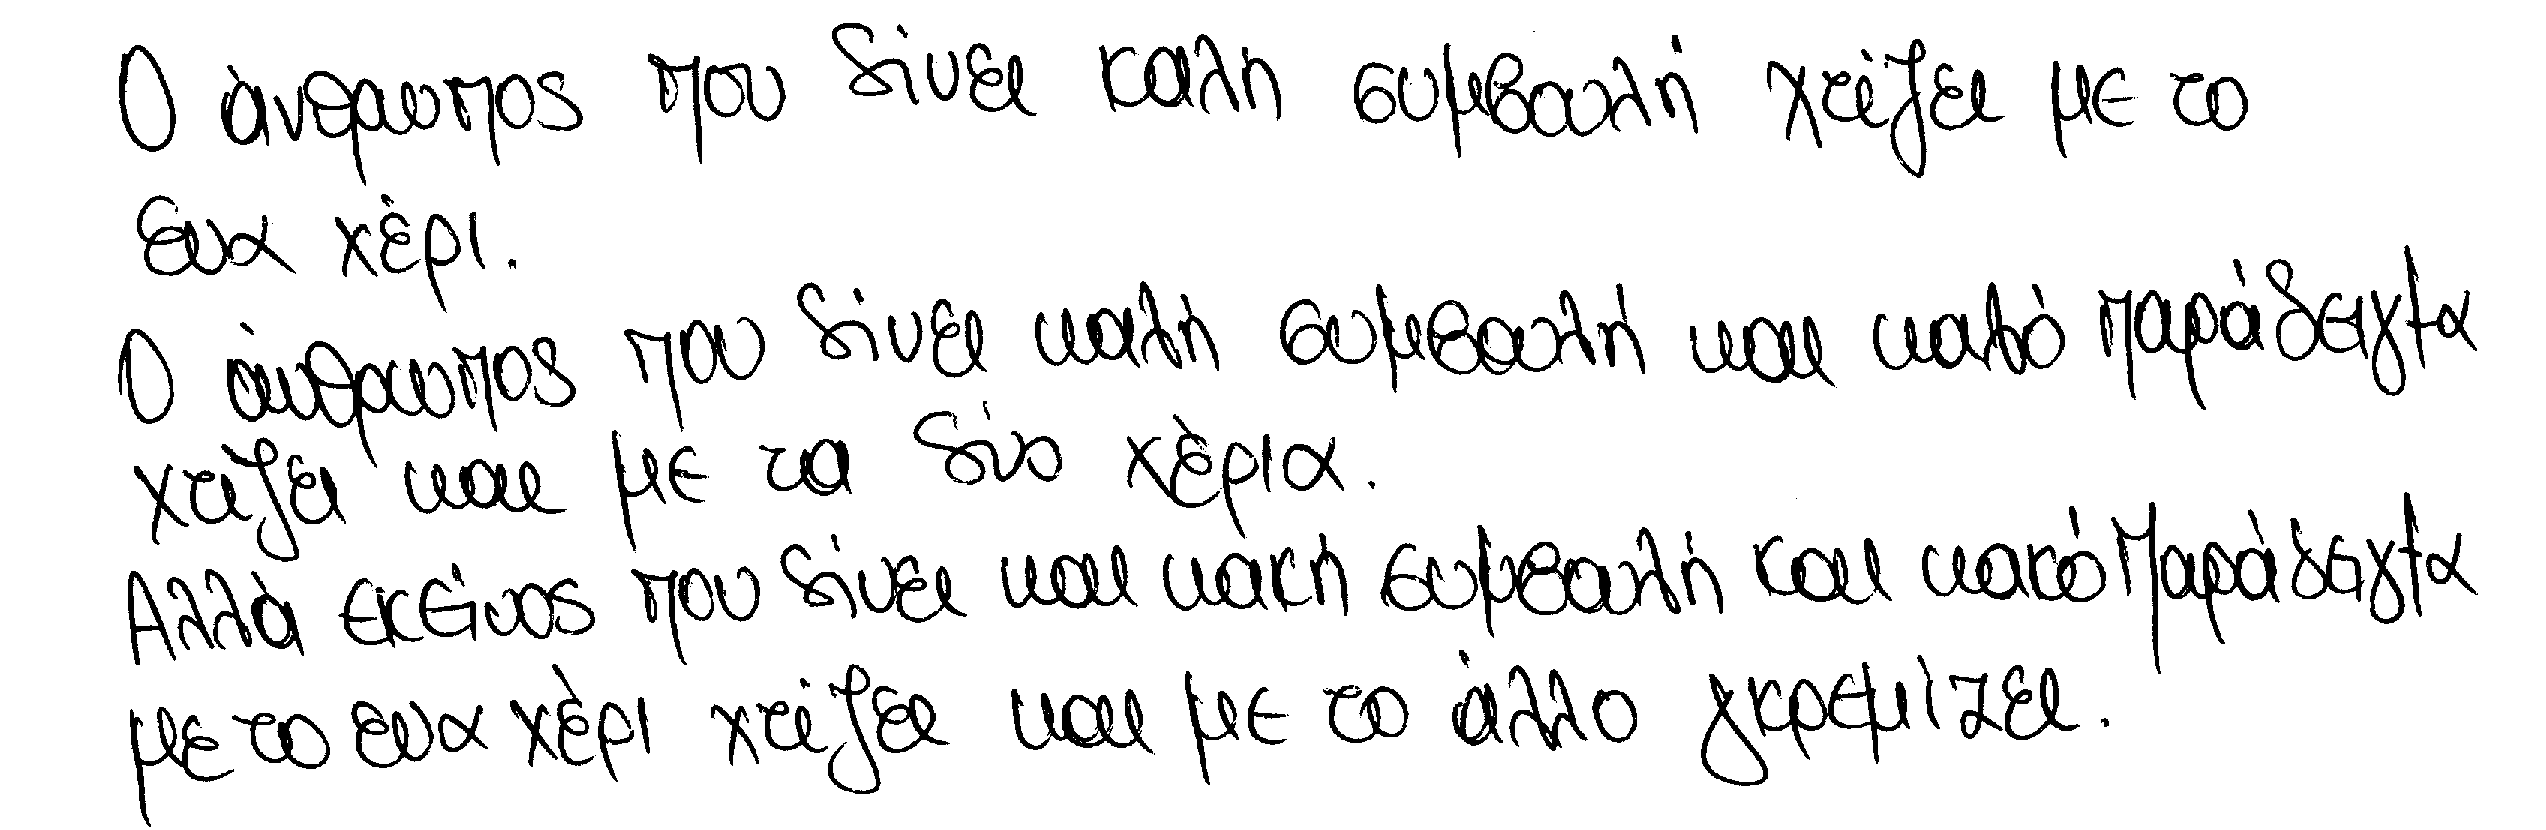 Ο άνθρωπος που δίνει καλή συμβουλή χτίζει με το
ενα χέρι.
Ο άνθρωπος που δίνει καλή συμβουλή και καλό παράδειγμα
χτίζει και με τα δύο χέρια.
Αλλά εκείνος που δίνει και κακή συμβουλή και κακό παράδειγμα
με το ενα χέρι χτίζει και με το άλλο γκρεμίζει.